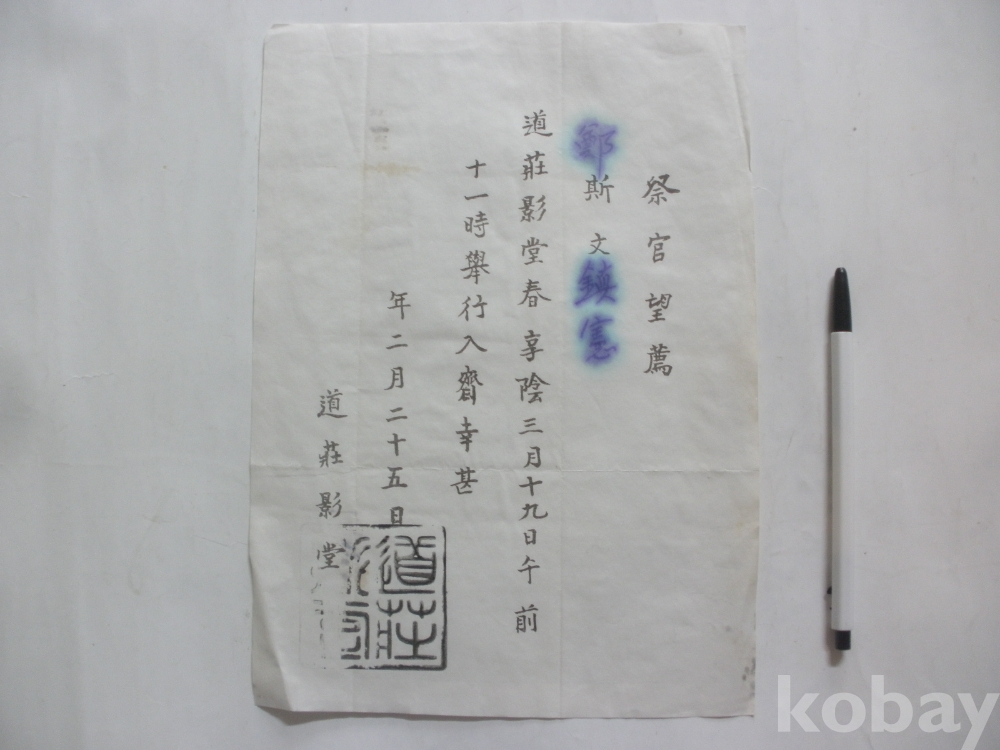 祭官望薦
鄭斯文鎮憲
道莊影堂春享陰三月十九日午前
十一時舉行入齋幸甚
年二月二十五日
道莊影堂
道莊
kobay